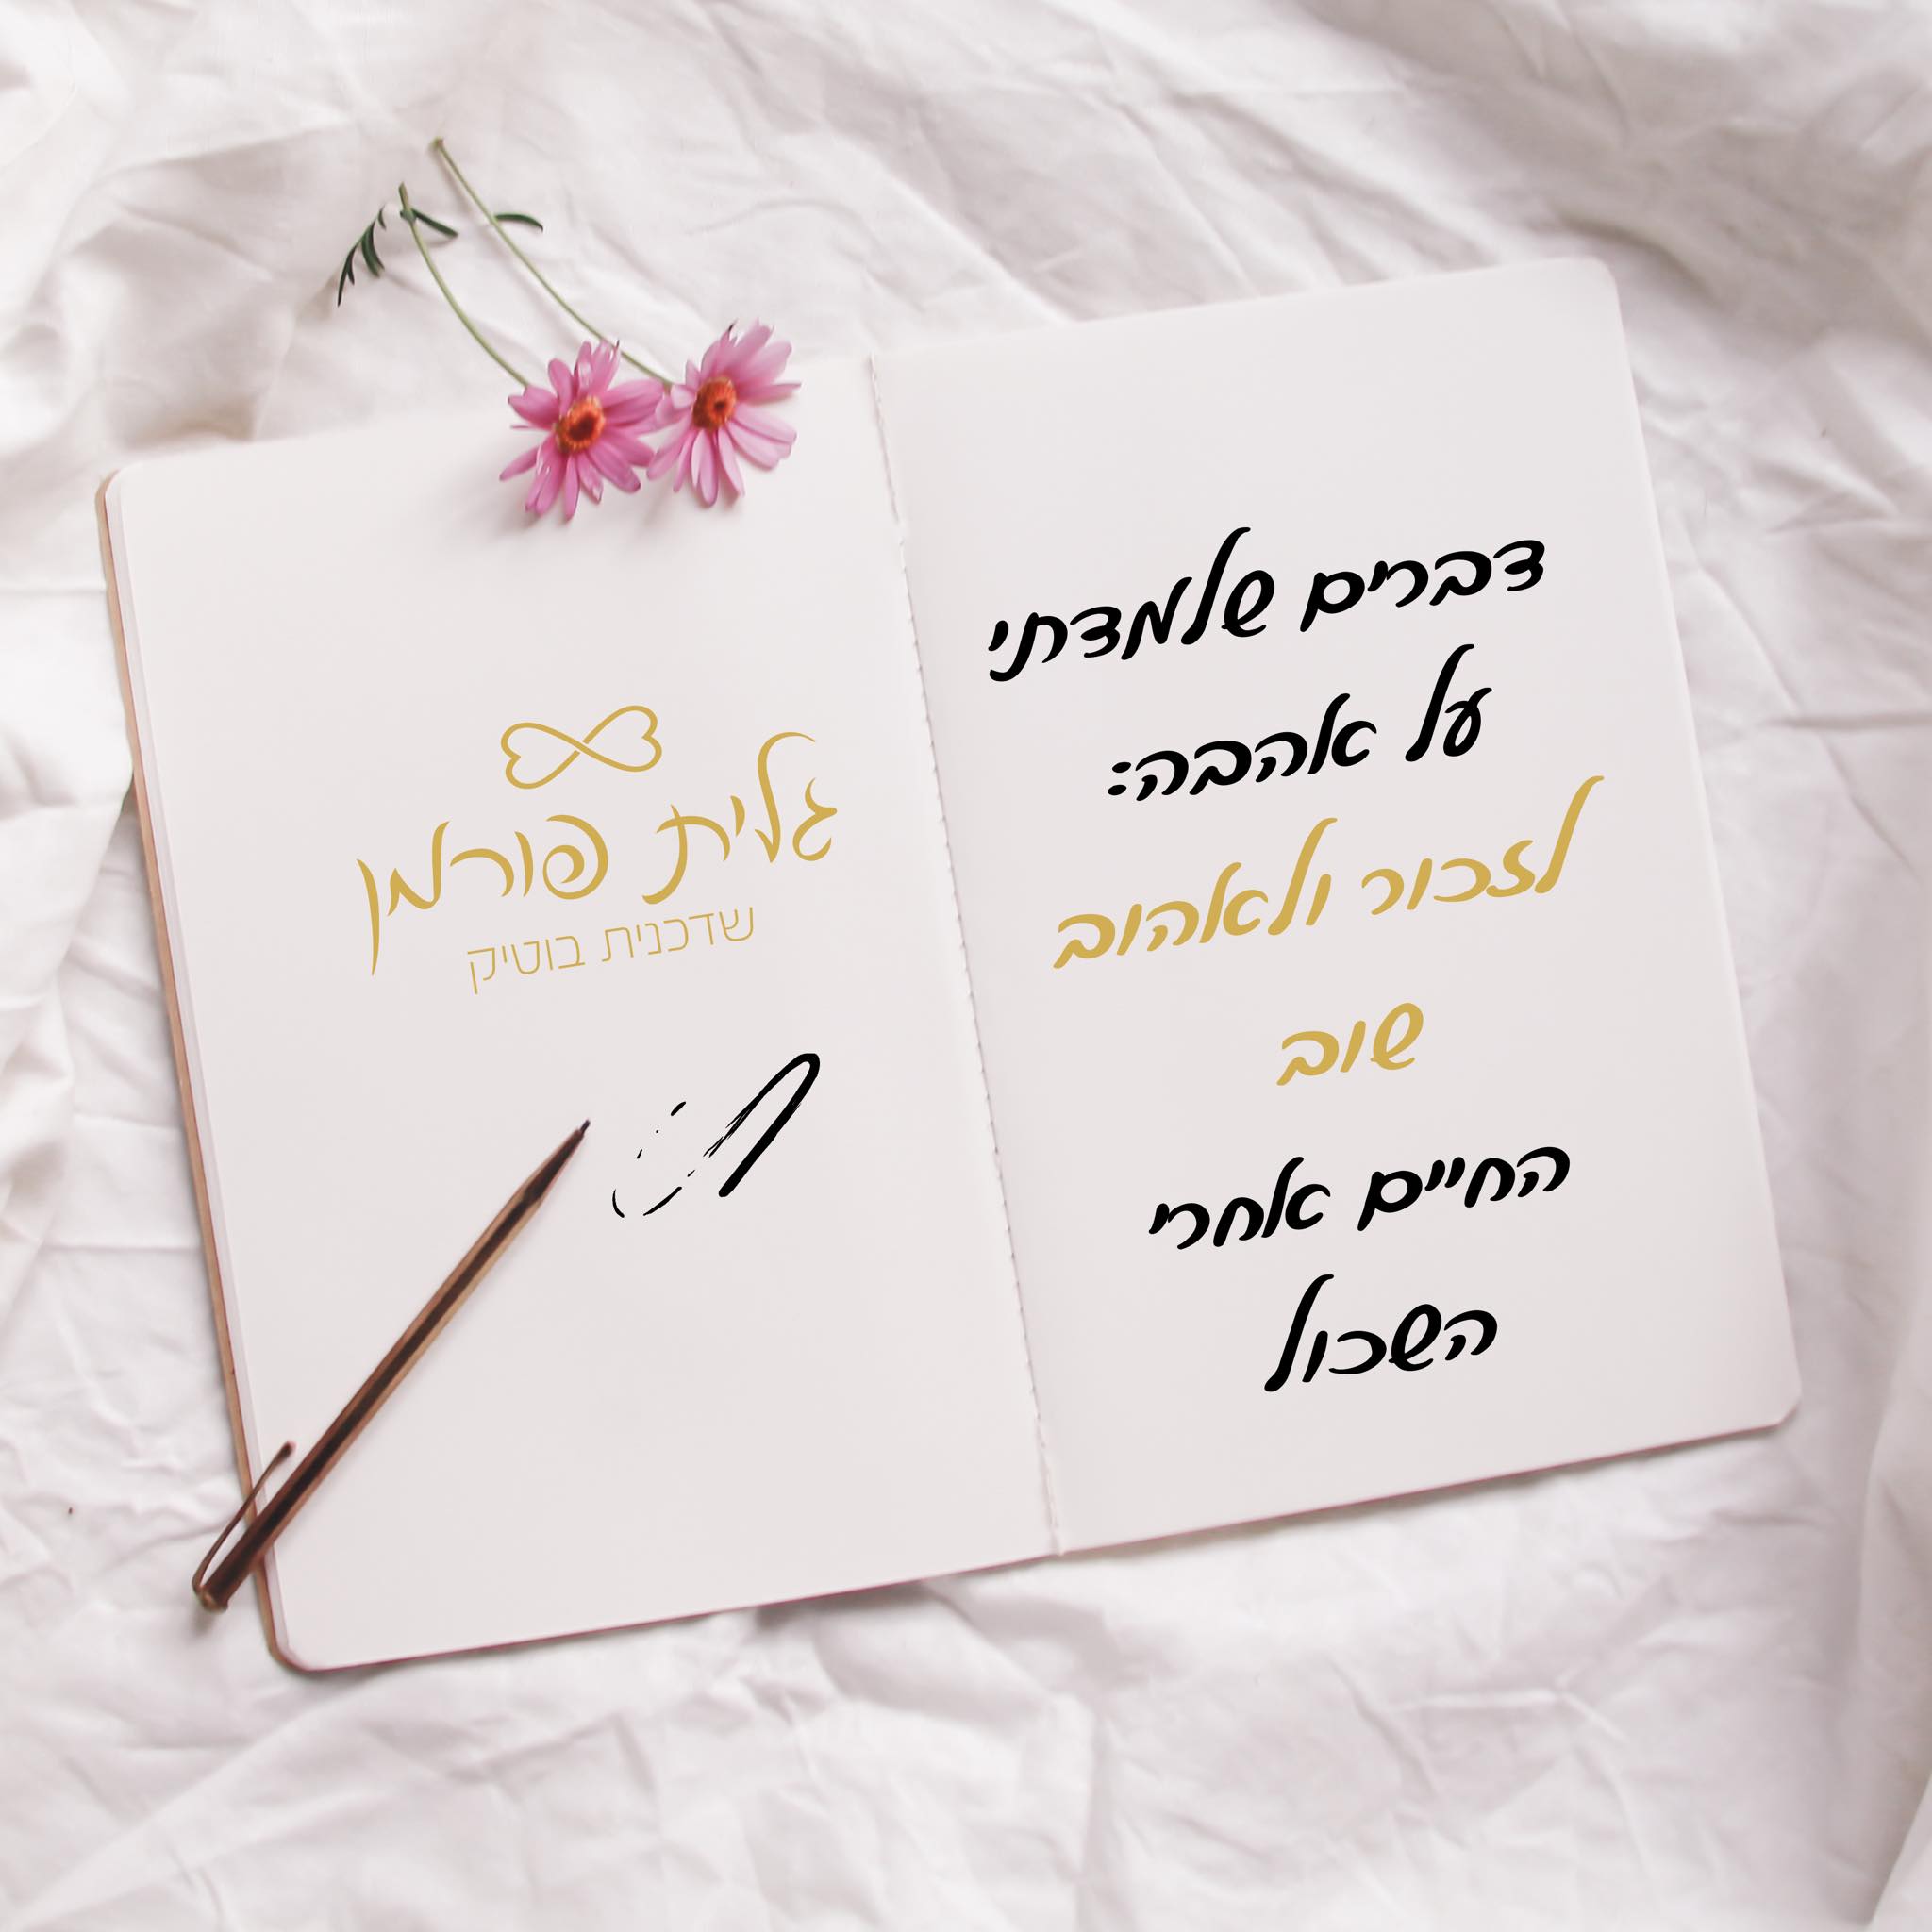 דברים שלמדתי
על אהבה:
לזכור ולאהוב
שוב
החיים אחרי
השכול
גלית פורמן
שדכנית בוטיק